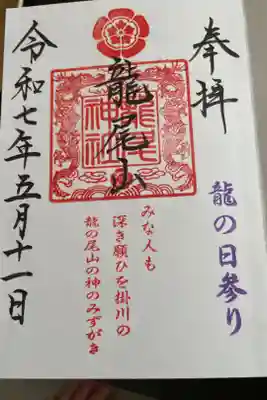 奉拝
龍の日参り
龍尾山
龍尾神社
みな人も
深き願ひを掛川の
龍の尾山の神のみずがき
令和七年五月十一日